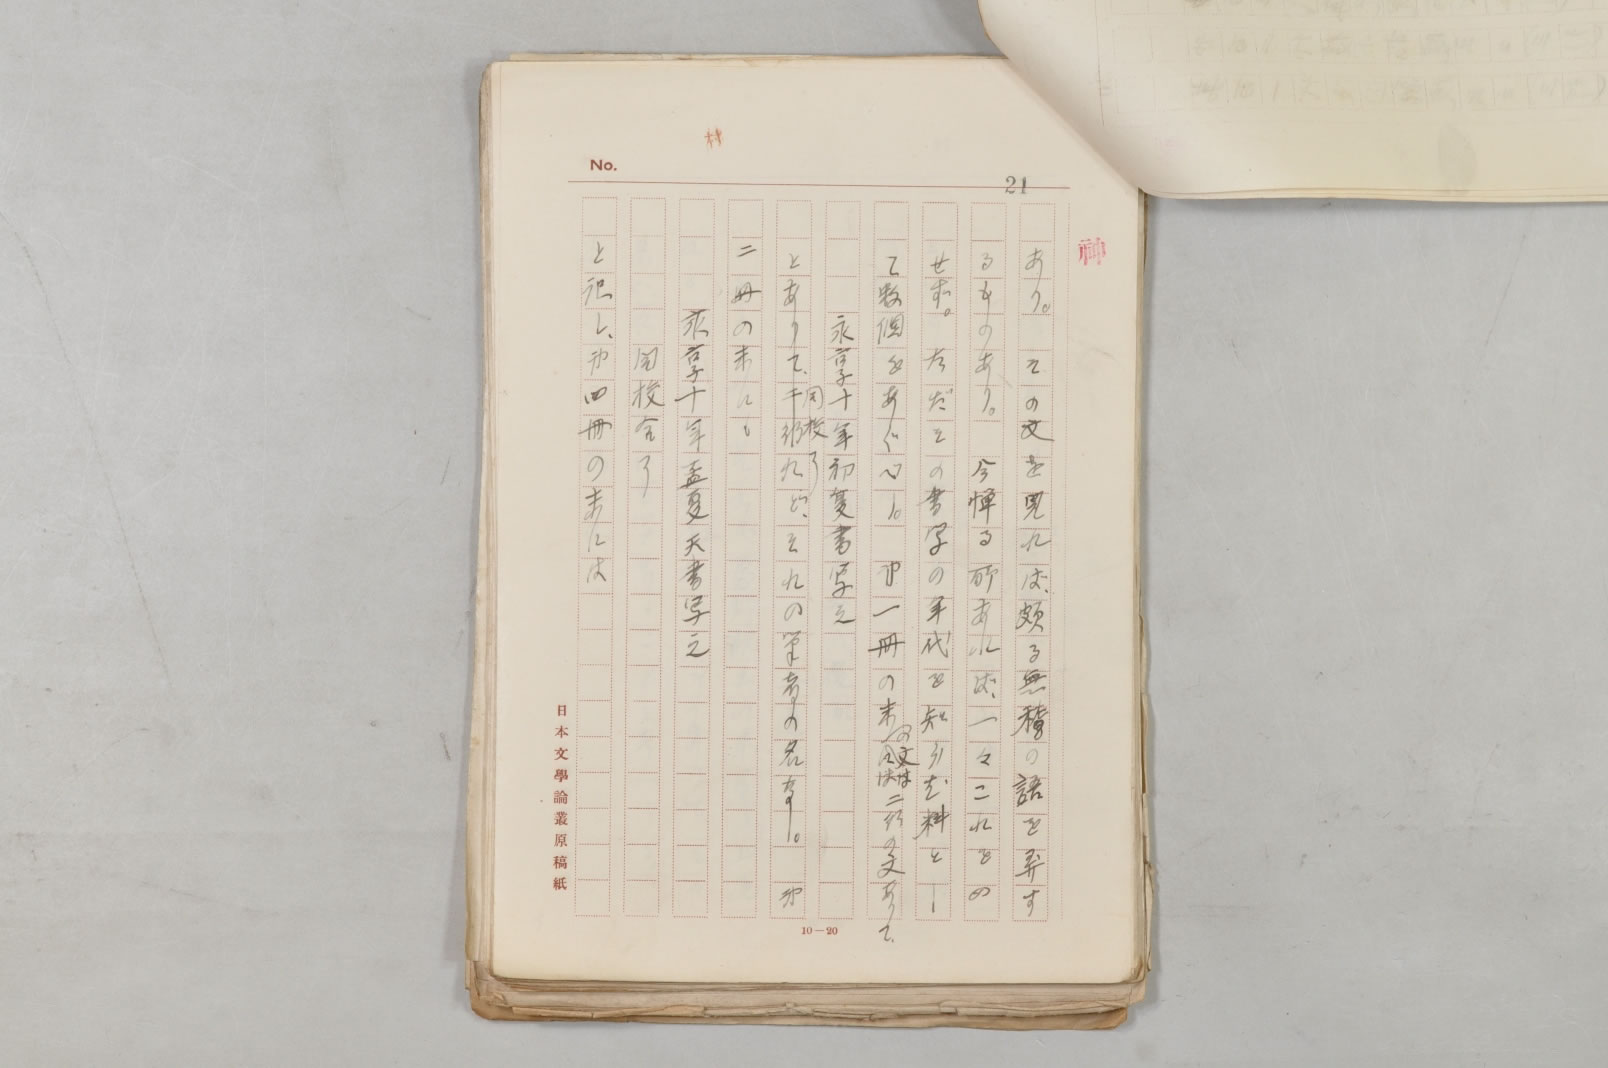 No.
21
村
神
あり。その文を見れば、頗る無稽の語を弄す
るものあり。今憚る所あれば、一々これをの
せず。ただその書写の年代を知り引き料とし
て数個をあぐべし。第一冊の末の文は二行の文ありて、
永享十年初夏書写之
同校了
とありて、干支
れど、それの筆者の名なし。第
二冊の末にも
永享十年孟夏天書写之
同校合了
と記し、第四冊の末には
日本文學論叢原稿紙
10―20